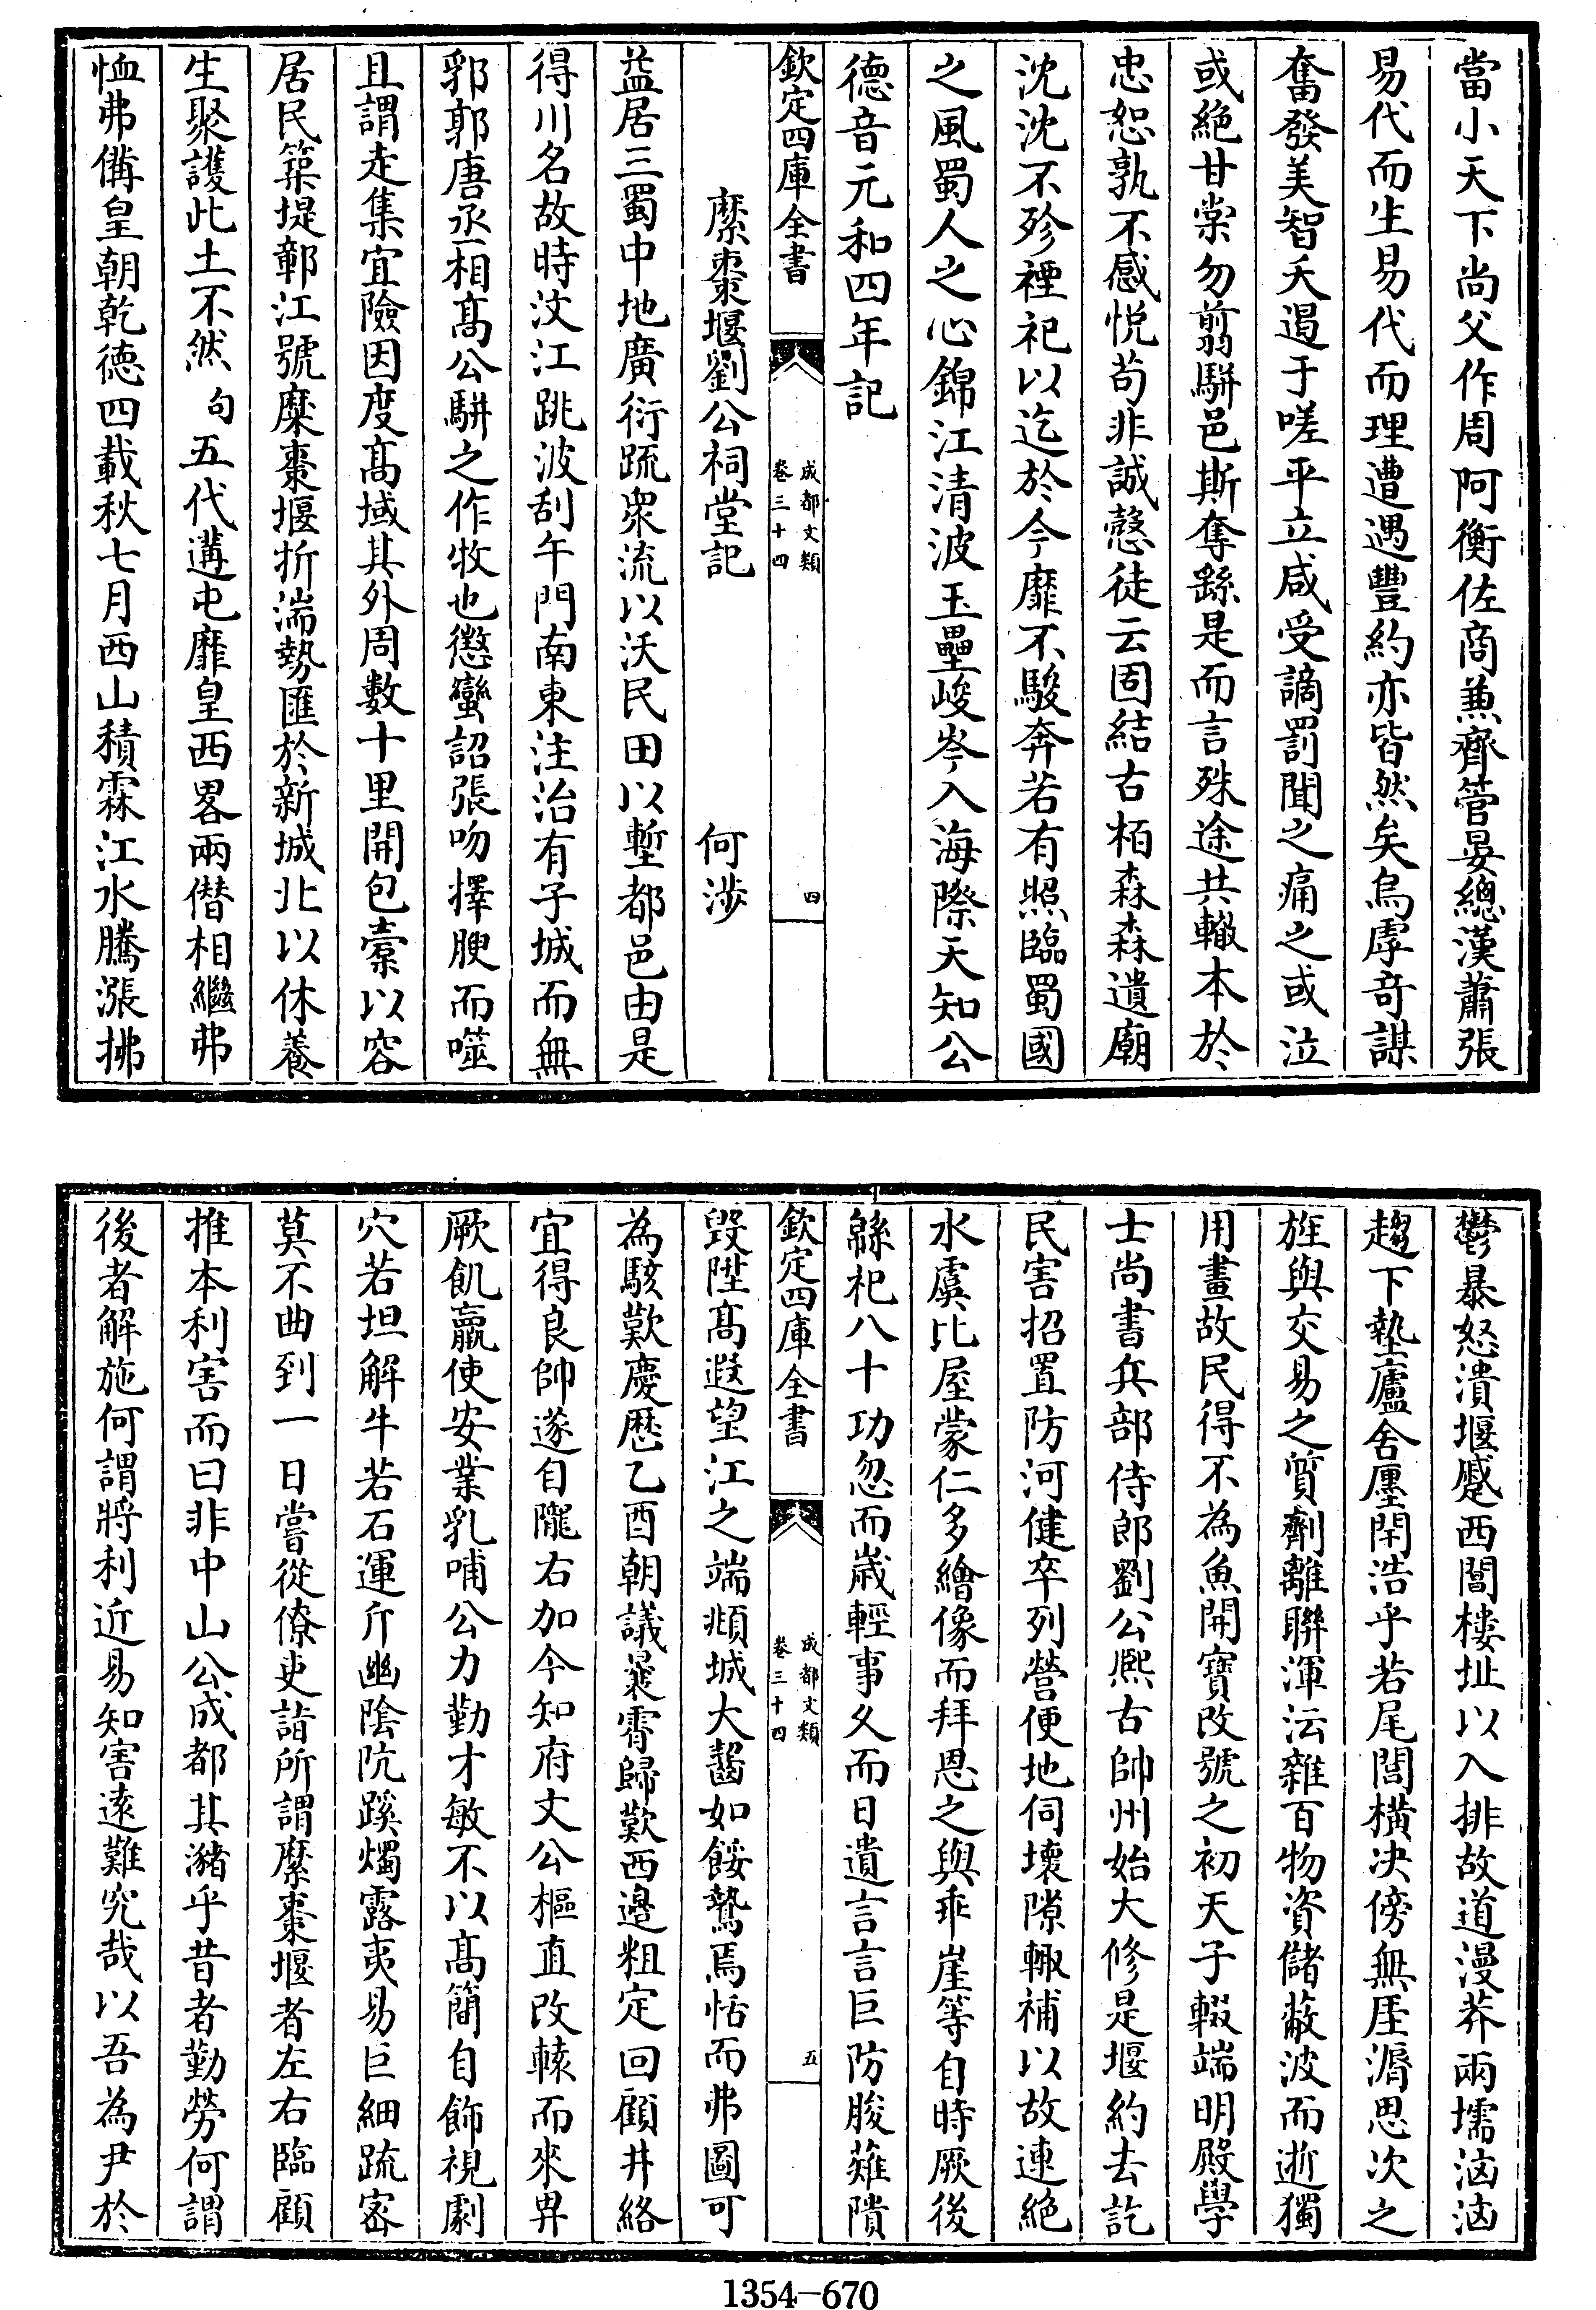 當小天下尚父作周阿衡佐商兼齊管晏總漢蕭張
易代而生易代而理遭遇豐約亦皆然矣烏虖奇謀
奮發美智夭遏于嗟平立咸受謫罰聞之痛之或泣
或絶甘棠勿翦駢邑斯奪繇是而言殊途共轍本於
忠恕孰不感悦苟非誠慤徒云固結古柏森森遺廟
沈沈不殄禋祀以迄於今靡不駿奔若有照臨蜀國
之風蜀人之心錦江清波玉壘峻岑入海際天知公
德音元和四年記
欽定四庫全書
成都文類
卷三十四
四
縻棗堰劉公祠堂記 何渉
益居三蜀中地廣衍疏衆流以沃民田以塹都邑由是
得川名故時汶江跳波刮午門南東注治有子城而無
郛郭唐丞相髙公駢之作牧也懲蠻詔張吻擇腴而噬
且謂走集宜險因度髙域其外周數十里開包橐以容
居民築堤鄣江號糜棗堰折湍勢匯於新城北以休養
生聚護此土不然句五代遘屯靡皇西畧兩僭相繼弗
恤弗備皇朝乾德四載秋七月西山積霖江水騰漲拂
鬱暴怒潰堰蹙西閭樓址以入排故道漫莽兩壖洶洶
趨下墊廬舍廛閈浩乎若尾閭横决傍無厓涘思次之
旌與交易之質劑離聯渾沄雜百物資儲蔽波而逝獨
用晝故民得不為魚開寳改號之初天子輟端明殿學
士尚書兵部侍郎劉公熈古帥州始大修是堰約去訖
民害招置防河健卒列營便地伺壞隙輙補以故連絶
水虞比屋蒙仁多繪像而拜恩之與乖崖等自時厥後
緜祀八十功忽而嵗輕事久而日遺言言巨防朘薙隤
毁陞髙遐望江之端頫城大齧如餒鷙焉恬而弗圖可
欽定四庫全書
成都文類
卷三十四
五
為駭歎慶厯乙酉朝議曩霄歸欵西邉粗定回顧井絡
宜得良帥遂自隴右加今知府文公樞直改轅而來畀
厥飢羸使安業乳哺公力勤才敏不以髙簡自飾視劇
穴若坦解牛若石運斤幽陰阬蹊燭露夷易巨細疏宻
莫不曲到一日嘗從僚吏詣所謂縻棗堰者左右臨顧
推本利害而曰非中山公成都其瀦乎昔者勤勞何謂
後者解施何謂將利近易知害逺難究哉以吾為尹於
1354—670